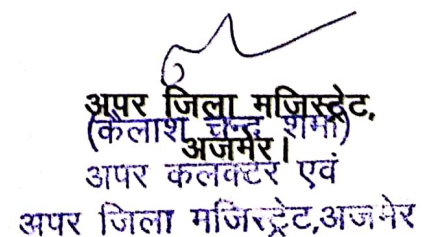 अपर जिला मजिस्ट्रेट,
(कैलाश चन्द्र शर्मा)
अजमेर।
अपर कलक्टर एवं
अपर जिला मजिस्ट्रेट,अजमेर